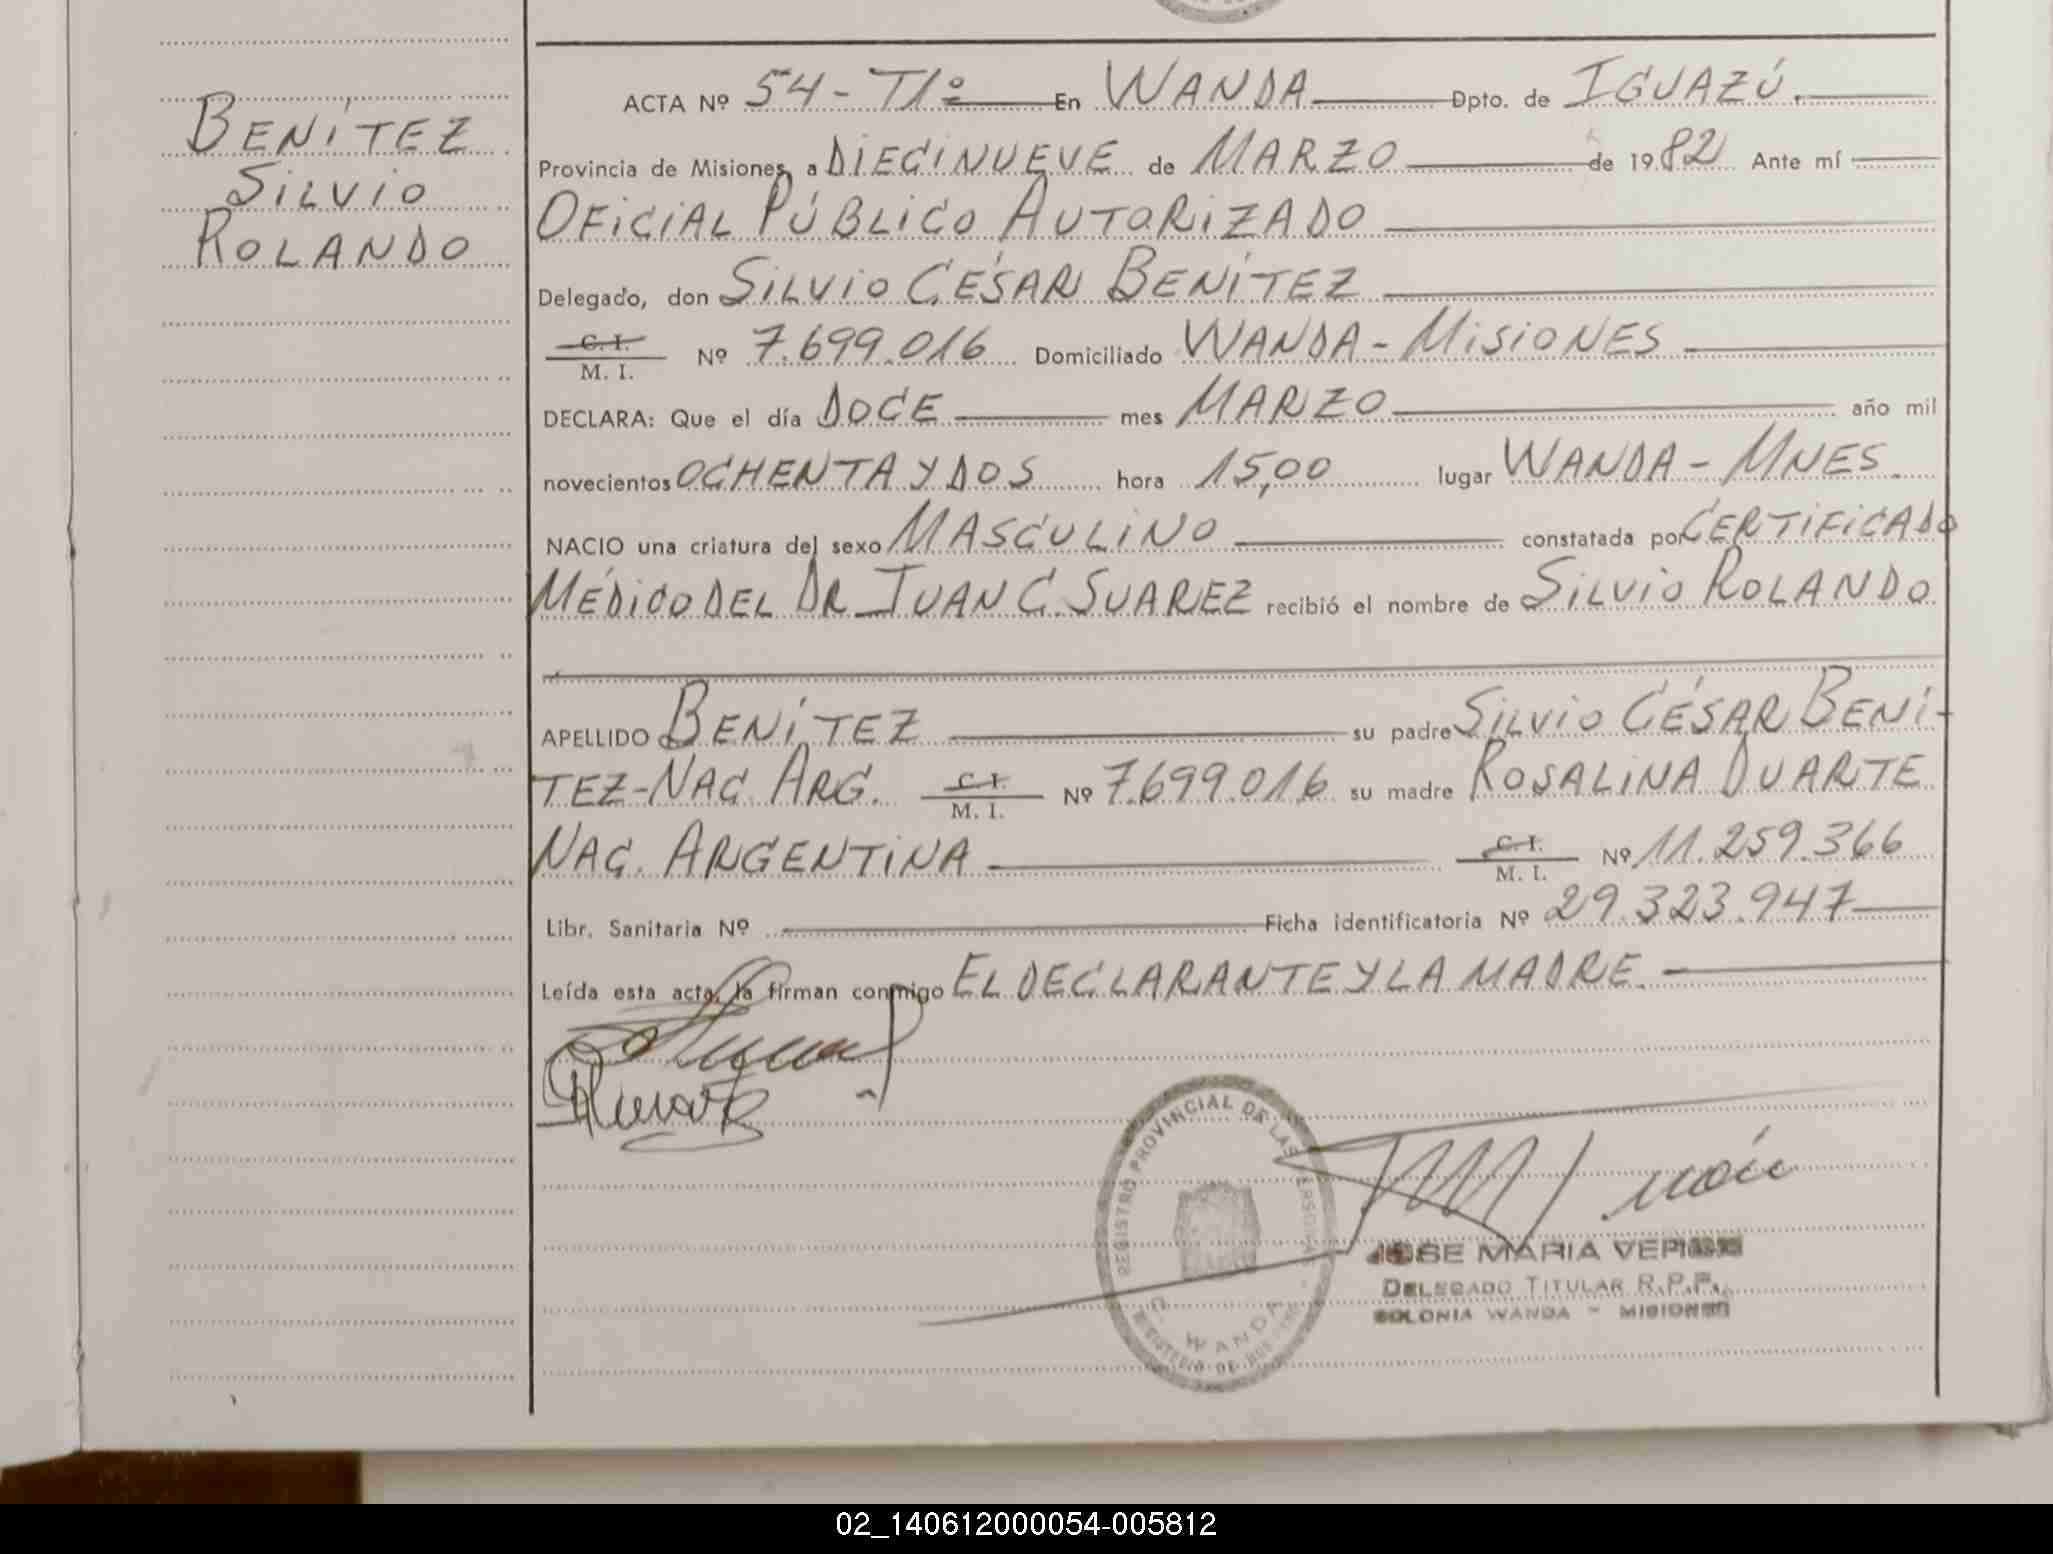 BENÍTEZ
SILVIO
ROLANDO
ACTA Nº 54-T1º En WANDA Dpto. de IGUAZÚ.
Provincia de Misiones, a DIECINUEVE de MARZO de 1982 Ante mí
OFICIAL PÚBLICO AUTORIZADO
Delegado, don SILVIO CÉSAR BENÍTEZ
C. I.
M. I. Nº 7.699.016 Domiciliado WANDA - MISIONES
DECLARA: Que el día DOCE mes MARZO año mil
novecientos OCHENTA Y DOS hora 15,00 lugar WANDA - MNES
NACIO una criatura del sexo MASCULINO constatada por CERTIFICADO
MÉDICO DEL DR JUAN C. SUAREZ recibió el nombre de SILVIO ROLANDO
APELLIDO BENÍTEZ su padre SILVIO CÉSAR BENÍ-
TEZ-NAC. ARG. C. I.
M. I. Nº 7.699.016 su madre ROSALINA DUARTE
NAC. ARGENTINA C. I.
M. I. Nº 11.259.366
Libr. Sanitaria Nº Ficha identificatoria Nº 29.323.947
Leída esta acta, la firman conmigo EL DECLARANTE Y LA MADRE.
REGISTRO PROVINCIAL DE LAS PERSONAS
WANDA
JOSE MARIA
DELEGADO TITULAR R.P.P.
COLONIA WANDA - MISIONES
02_140612000054-005812